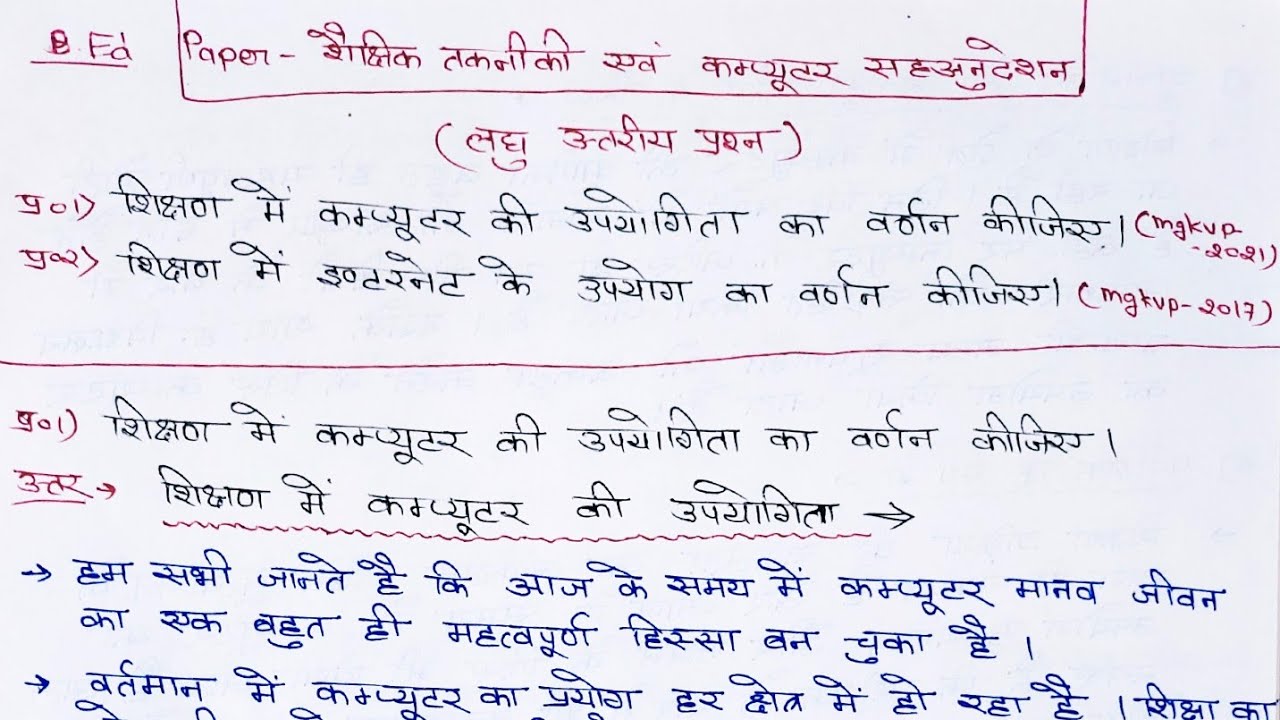 B.Ed Paper - शैक्षिक तकनीकी एवं कम्प्यूटर सहअनुदेशन
(लघु उत्तरीय प्रश्न)
प्र०1> शिक्षण में कम्प्यूटर की उपयोगिता का वर्णन कीजिए। (mgkvp-2021)
प्र०२> शिक्षण में इण्टरनेट के उपयोग का वर्णन कीजिए। (mgkvp-2017)
प्र०1) शिक्षण में कम्प्यूटर की उपयोगिता का वर्णन कीजिए।
उत्तर→ शिक्षण में कम्प्यूटर की उपयोगिता →
→ हम सभी जानते है कि आज के समय में कम्प्यूटर मानव जीवन
का एक बहुत ही महत्वपूर्ण हिस्सा बन चुका है।
→ वर्तमान में कम्प्यूटर का प्रयोग हर क्षेत्र में हो रहा है। शिक्षा का